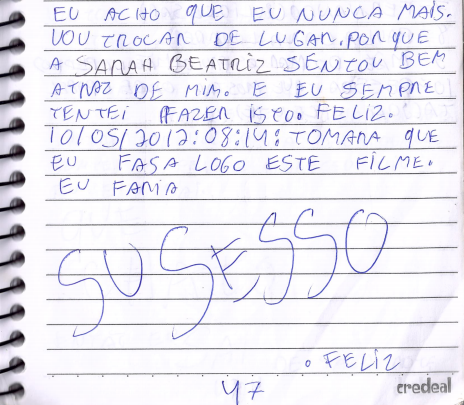 EU ACHO QUE EU NUNCA MAIS.
VOU TROCAR DE LUGAR.PORQUE
A SARAH BEATRIZ SENTOU BEM
ATRAZ DE MIM. E EU SEMPRE
TENTEI FAZER ISTO. FELIZ.
10/05/2012:08:14: TOMARA QUE
EU FASA LOGO ESTE FILME.
EU FARIA
SUSESSO
. FELIZ
47
credeal